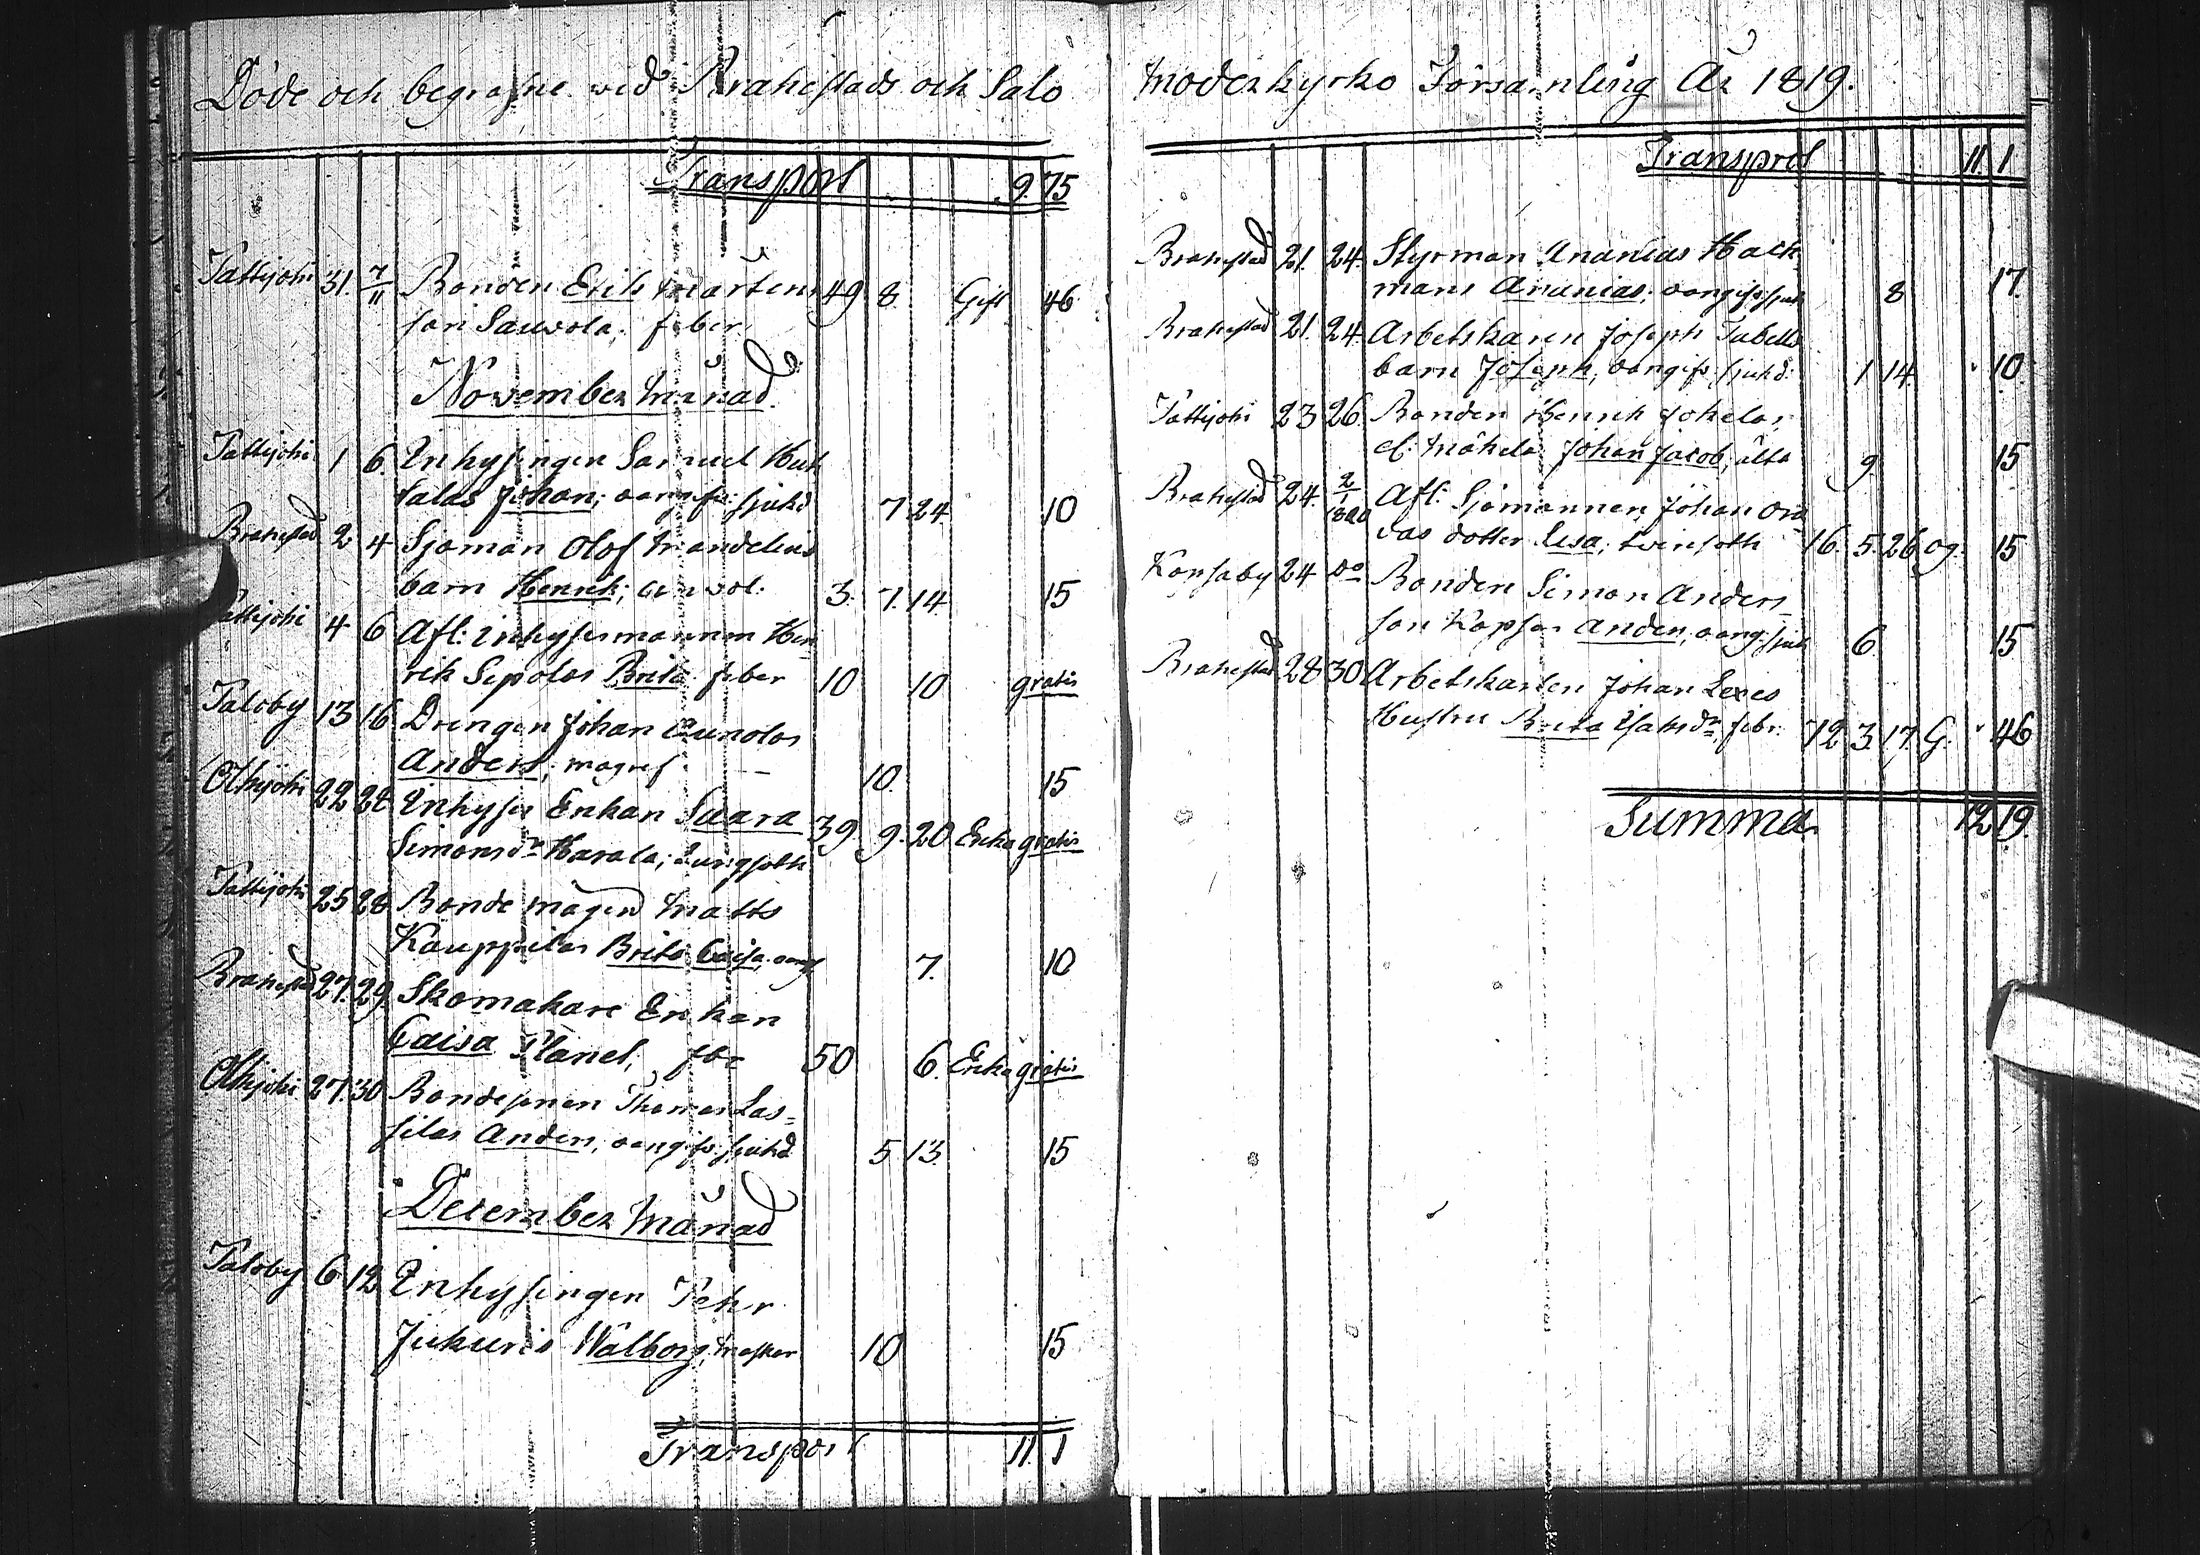 Döde och begrafne wid Brahestads och Salo
Transport 9. 75
Pattijoki 31. 7/11 Bonden Erik Mårtens 49 8 Gift 46
son Sauvola; feber
November Månad
Pattijoki 1 6. Inhysingen Samuel Huh
talas Johan; oangifv: sjukd 7. 24 10
Brahestad 2 4 Sjöman Olof Mandelins
barn Henrik; 3. 7. 14 15
Pattijoki 4 6 Afl: Inhysesmannen Hen
rik Sipolas Brita feber 10 10 gratis
Paloby 13 16 Drengen Johan
Anders; magref 10. 15
Olkijoki 22 28 Inhyses Enkan Saara 39 9. 20 Enka gratis
Simonsdr Harala; Lungsoth
Pattijoki 25 28 Bonde mågen Matts
Kauppilas Brita Caisa, oangf 7. 10
Brahestad 27. 29. Skomakare Enkan
Caisa Planel, fbr 50 6. Enka gratis
Olkijoki 27. 30 Bondesonen Thomas Las=
silas Anders, oangifv. sjukd 5 13. 15
December Månad
Paloby 6 12 Inhysingen Pehr
Jukuris Walborg, 10 15
Transport 11. 1
Moderkyrko Församling År 1819.
Transport 11. 1
Brahestad 21. 24. Styrman Ananias Hack
mans Ananias; oangifv. sjuk 8 17.
Brahestad 21. 24. Arbetskaren Joseph Tabells
barn Joseph, oangifv. sjukd: 1 14 10.
Pattijoki 23 26. Bonden Henrik Jokelas,
el. Mäkelä Johan Jacob, ålta 9. 15
Brahestad 24. 2/1 1820 Afl: Sjömannen Johan Ora
vas dotter Lisa; twinsoth 16. 5. 26 og. 15
Kopsaby 24 do Bonden Simon Anders
son Kopsas Anders, oang. sjuk 6. 15
Brahestad 28 30 Arbetskarlen Johan Lexes
Hustru Brita Isaksdr, febr. 72 3. 17. G. 46
Summa 12. 19